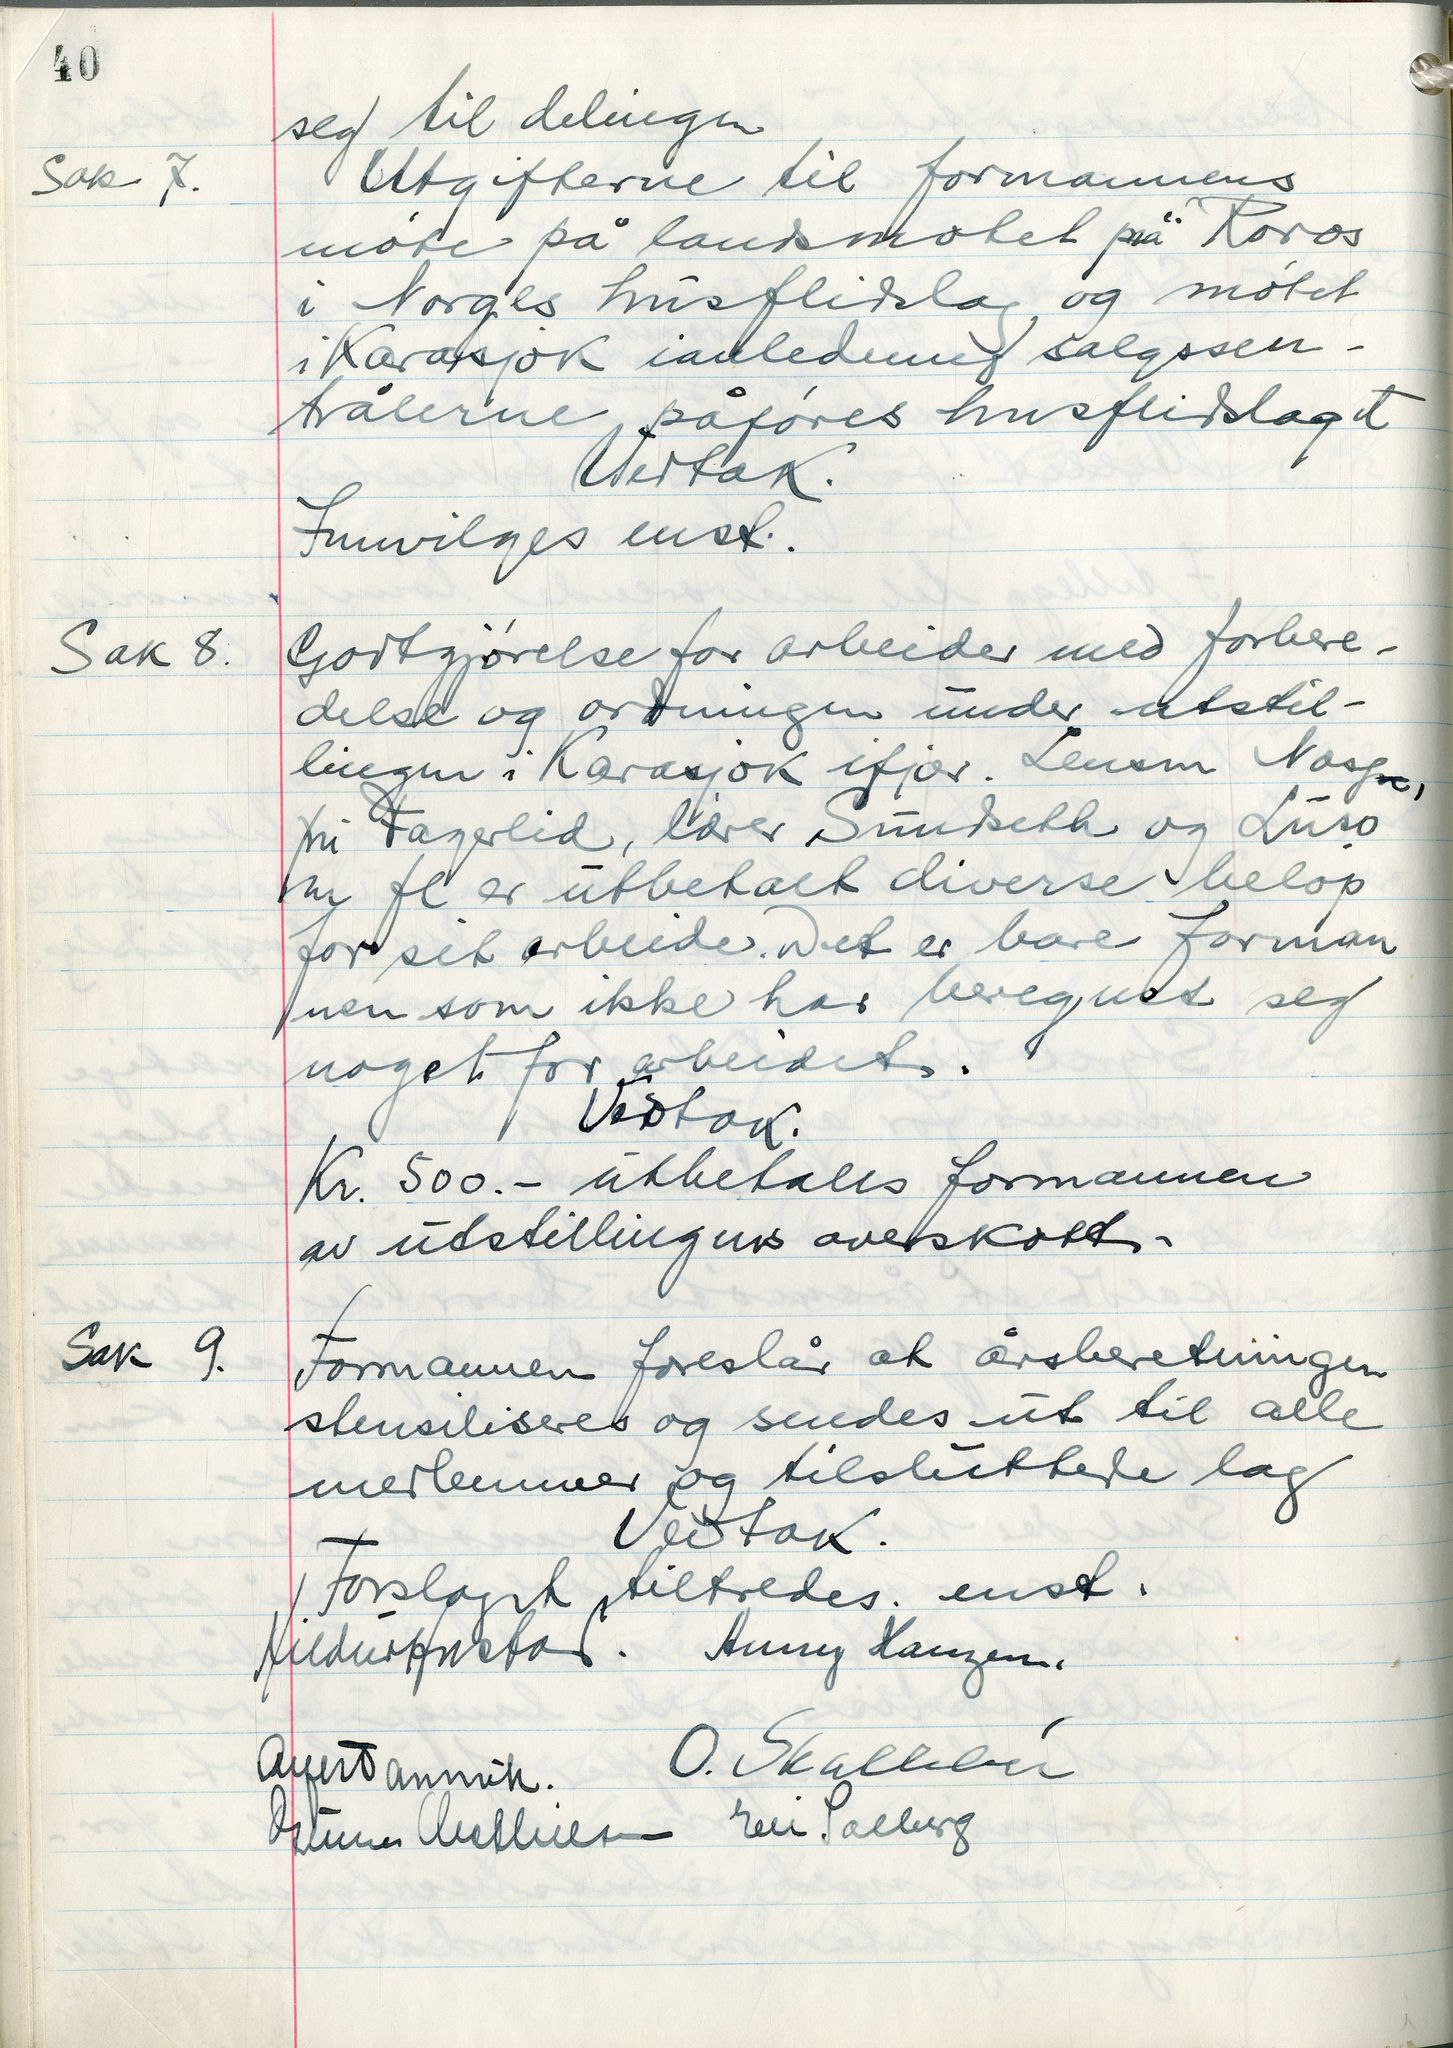 40
seg til delingen
Sak 7. Utgifterne til formannens
møte på landsmøtet på Røros
i Norges husflidslag og møtet
i Karasjok ianledning salgssen-
trålerne påføres husflidslaget
Vedtak.
Innvilges enst.
Sak 8. Godtgjørelse for arbeider med forbere-
delse og ordningen under utstil-
lingen i Karasjok ifjor. Lensm
fru Fagerlid, lærer Sundseth og Luso
m fl er utbetalt diverse beløp
for sit arbeide. Det er bare forman
nen som ikke har beregnet seg
noget for arbeidet.
Vedtak.
Kr. 500.- utbetales formannen
av utstillingens overskott.
Sak 9. Formannen foreslår at årsberetningen
stensiliseres og sendes ut til alle
medlemmer og tilsluttede lag
Vedtak.
Forslaget tiltredes enst.
Anny Hanzen.
O. Skallebø
Eli Solberg